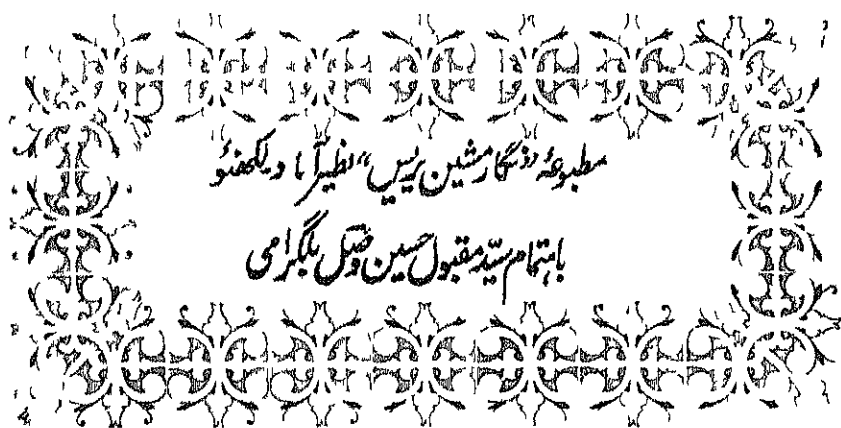 مطبوعۂ "نگار مشین پریس" نظیر آباد لکھنؤ
باہتمام سید مقبول حسین وصل بلگرامی